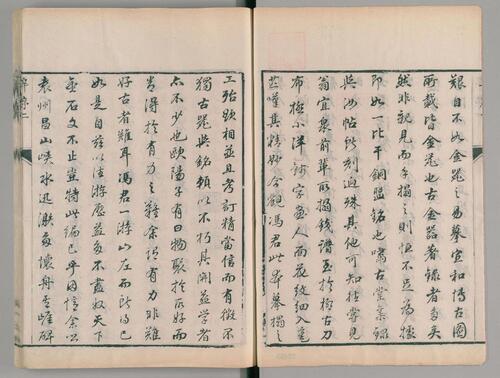 艱自不如金器之易摹宣和博古圖
所載皆金器也古金器著錄者多矣
然非親見而手搨之則恒不足為據
即如一比干銅盤銘也嘯古堂集錄
與汝帖所刻迥殊其他可知往嘗見
翁宜泉前輩所搨錢譜至於摹古刀
布極小洋字細入毫
芒嘆其精妙今觀馮君此本摹搨之
工殆欲相並且考訂精當信而有徵不
獨古器與銘賴以不朽其開益學者
亦不少也歐陽子有曰物聚於所好而
得於有力之余謂有力非難
好古者難耳馮君一游山左而所得已
如是自茲以往游歷益多不盡取天下
金石文不止豈特此編已乎因憶余以
袁州昌山峽水迅激舟崖碑